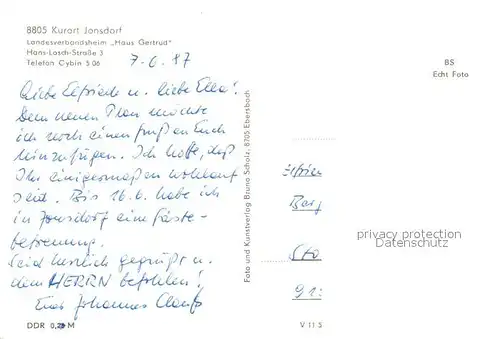 8805 Kurort Jonsdorf
Landesverbandsheim „Haus Gertrud"
Hans-Lasch-Straße 3
Telefon Cybin 5 06
7.6.87
BS
Echt Foto
Liebe Elfriede u. liebe Ella!
Dem neuen Plan möchte
ich noch einen Gruß an Euch
hinzufügen. Ich hoffe, daß
Ihr einigermaßen wohlauf
seid. Bis 16.6. habe ich
in Jonsdorf eine Gäste-
betreuung.
Seid herzlich gegrüßt u.
dem HERRN befohlen!
Euer Johannes
Foto und Kunstverlag Bruno Scholz, 8705 Ebersbach
Elfrie
privacy protection
Datenschutz
DDR M
V 11 5